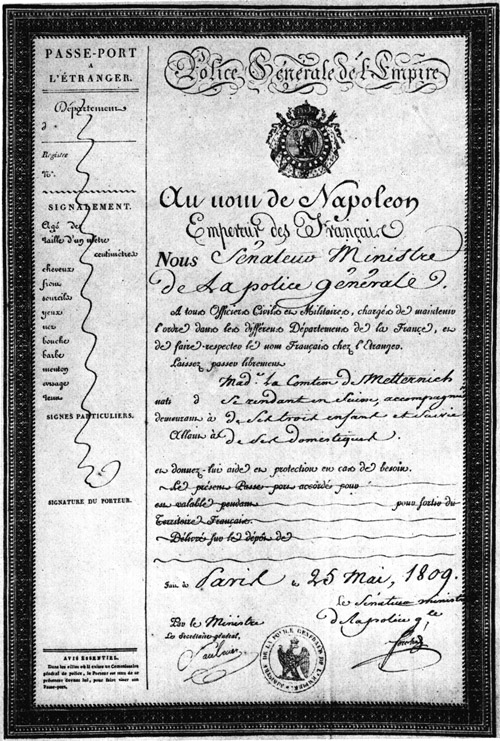 PASSE-PORT
A
L'ÉTRANGER.
Département
d
Registre
N.º
SIGNALEMENT.
Agé de
taille d'un mètre
centimètres
cheveux
front
sourcils
yeux
nez
bouche
barbe
menton
visage
teint
SIGNES PARTICULIERS.
SIGNATURE DU PORTEUR.
AVIS ESSENTIEL.
Dans les villes où il existe un Commissaire
général de police, le Porteur est tenu de se
présenter devant lui, pour faire viser son
Passe-port.
Police Générale de l'Empire
Au nom de Napoleon
Empereur des Français
Nous Sénateur Ministre
de La police g.ñ.rale.
A tous Officiers Civils et Militaires, chargés de maintenir
l'ordre dans les différens Départemens de la France, et
de faire respecter le nom Français chez l'Etranger.
Laissez passer librement
Mad.e La Comtesse de Metternich
nati d Se rendant en Suisse, accompagnée
demeurant à de Ses trois enfans et suivie
Allant à de Ses domestiques.
et donnez-lui aide et protection en cas de besoin.
Le présent Passe-port accordé pour
est valable pendant pour sortir du
Territoire Français.
Délivré sur le dépôt de
Fait à Paris le 25 Mai, 1809.
Le Sénateur ministre
de La police g.le
Par le Ministre
Le Secrétaire général,
Saulnier
Fouché